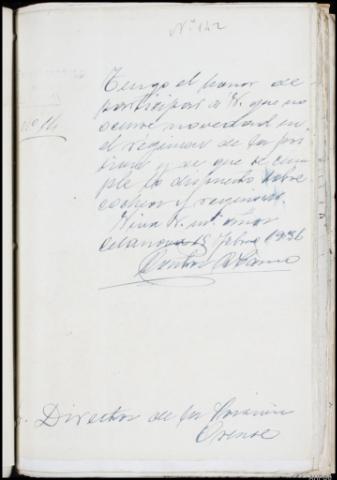 Nº 142
Tengo el honor de
participar a V. que no
ocurre novedad en
el regimen de la pri
sion y de que se cum
ple lo dispuesto sobre
cacheos y requisas.
Viva V. ms. años
Celanova 13 Febro 1936
Director de la Prisión
Orense